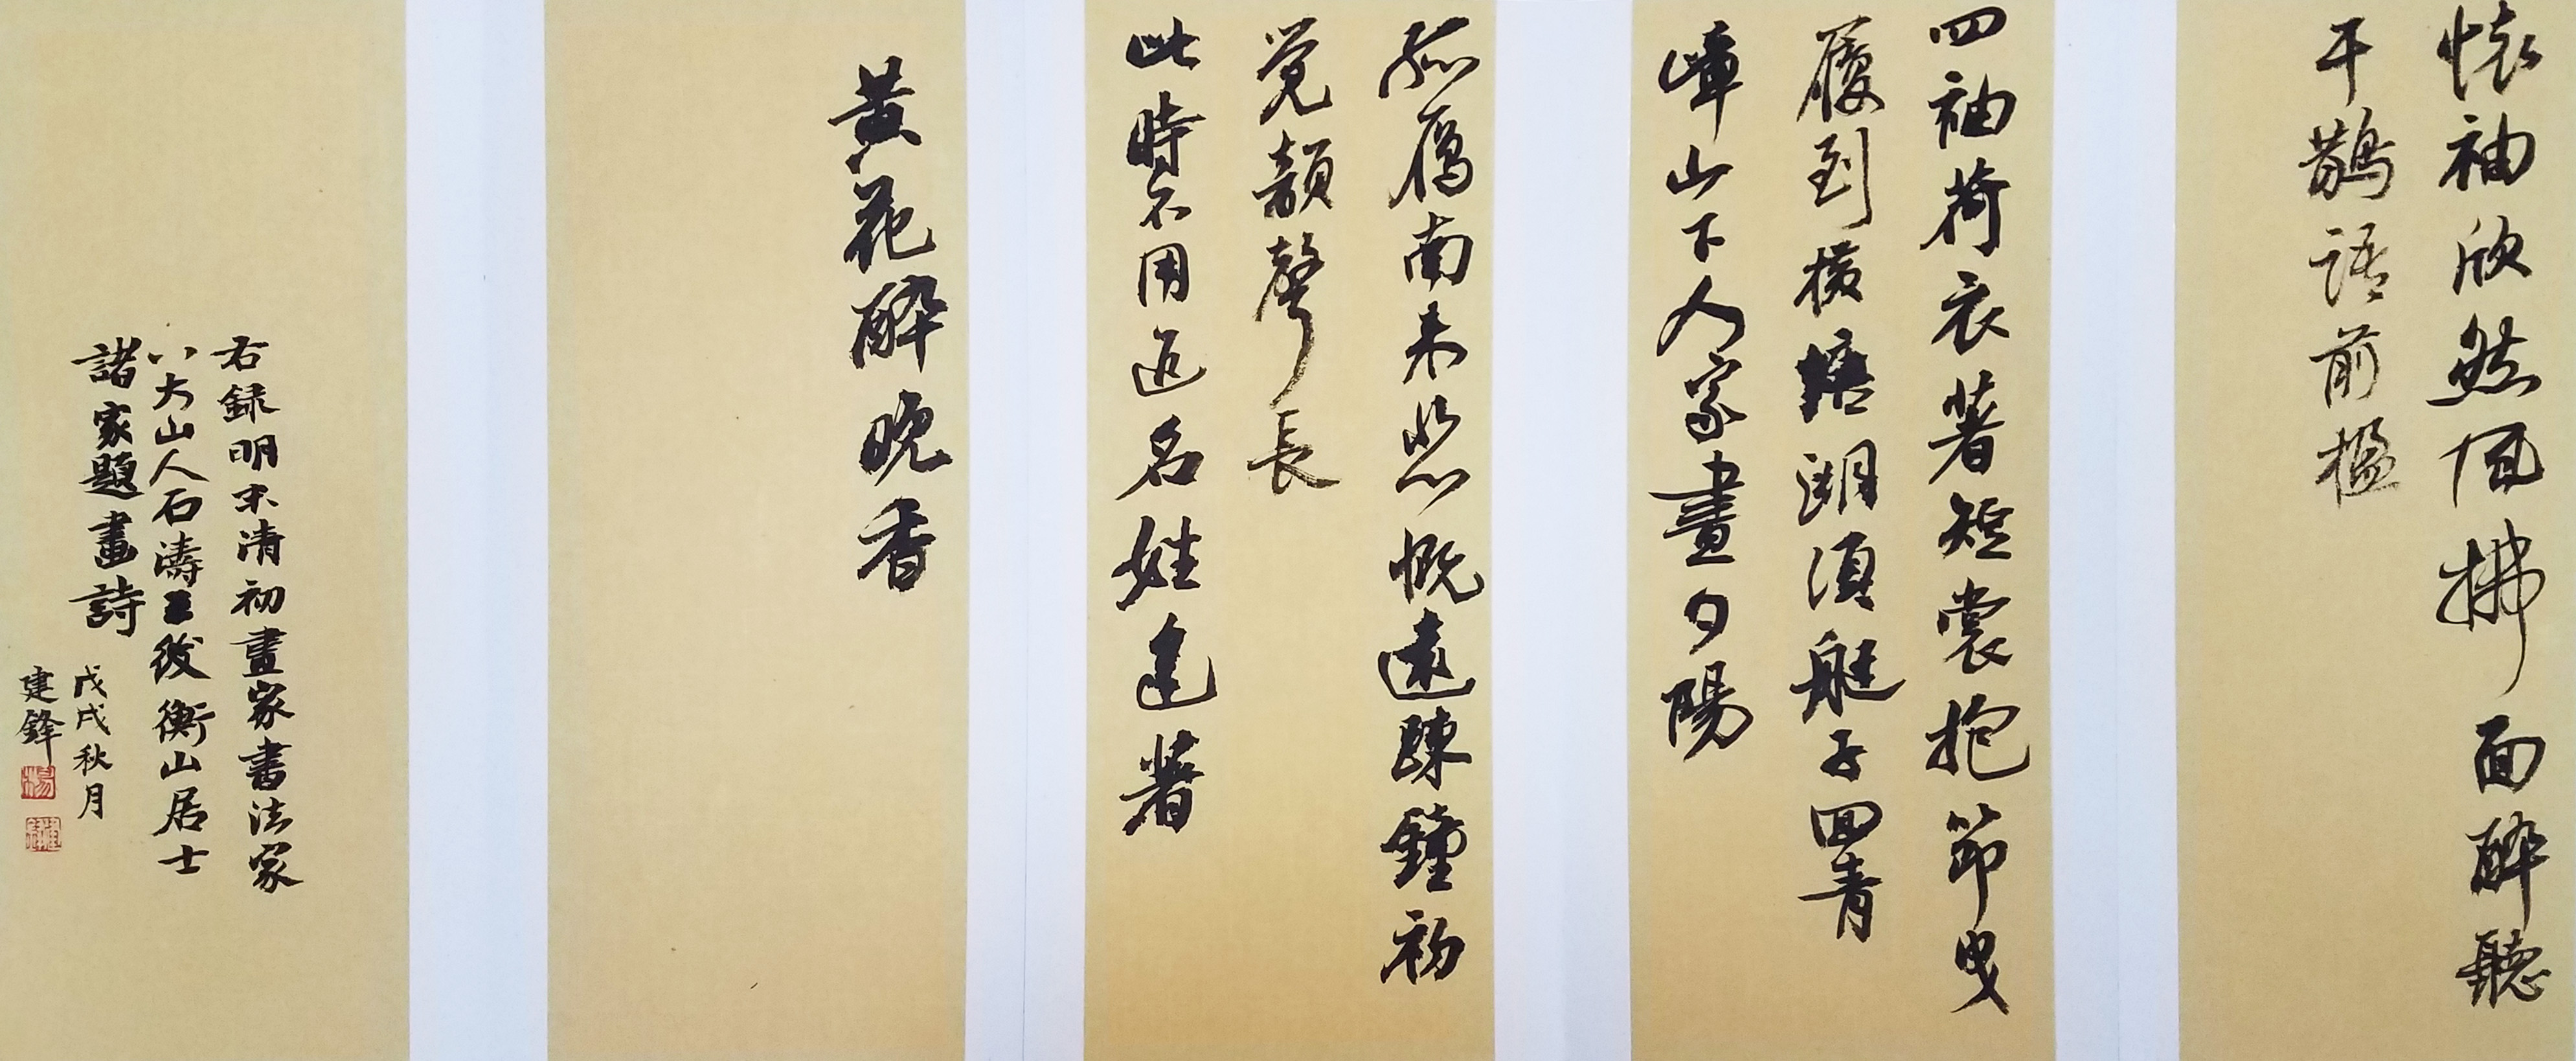 懷袖欣然風拂面醉聽
干鵲語前楹
四袖荷衣著短裳抱節曳
履到橫塘湖濱艇子回青
嶂山下人家畫夕陽
孤雁南來悲慨遠疎鐘初
覺韻聲長
此時不用逃名姓遙著
黃花醉晚香
右録明末清初畫家書法家
八大山人石濤 後衡山居士
諸家題畫詩
戊戌秋月
建鋒